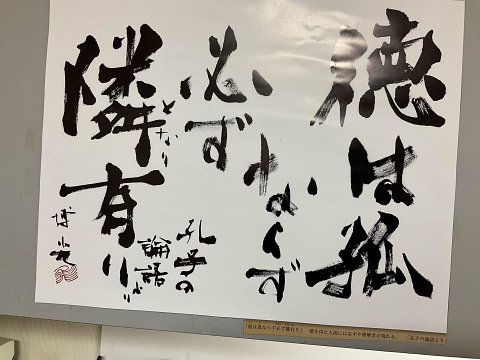 徳は孤
ならず
必ず
隣有り
となり
孔子の
論語
「徳は孤ならず必ず隣有り」 徳を得た人間には必ずや理解者が現れる。 「孔子の論語より」